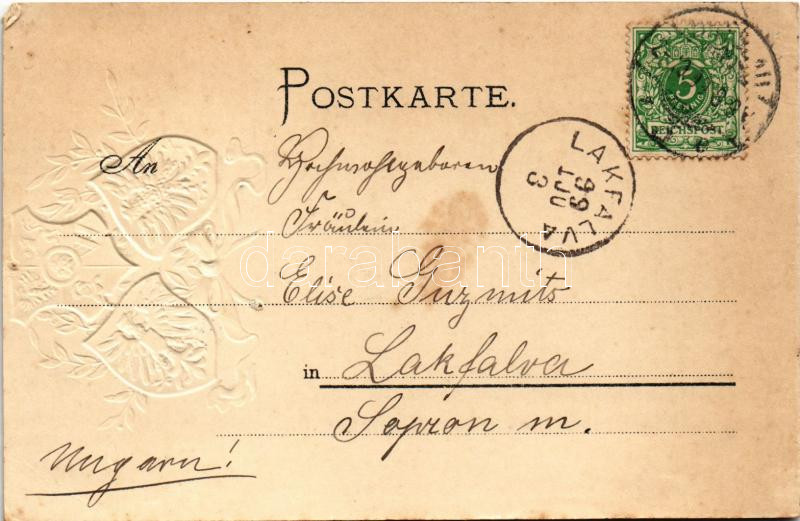 POSTKARTE.
5
REICHSPOST
LAKFALVA
99
JUL
3
An
Hochwohlgeboren
Fräulein
Elise Guzmits
in Lakfalva
Sopron m.
Ungarn!
darabanth